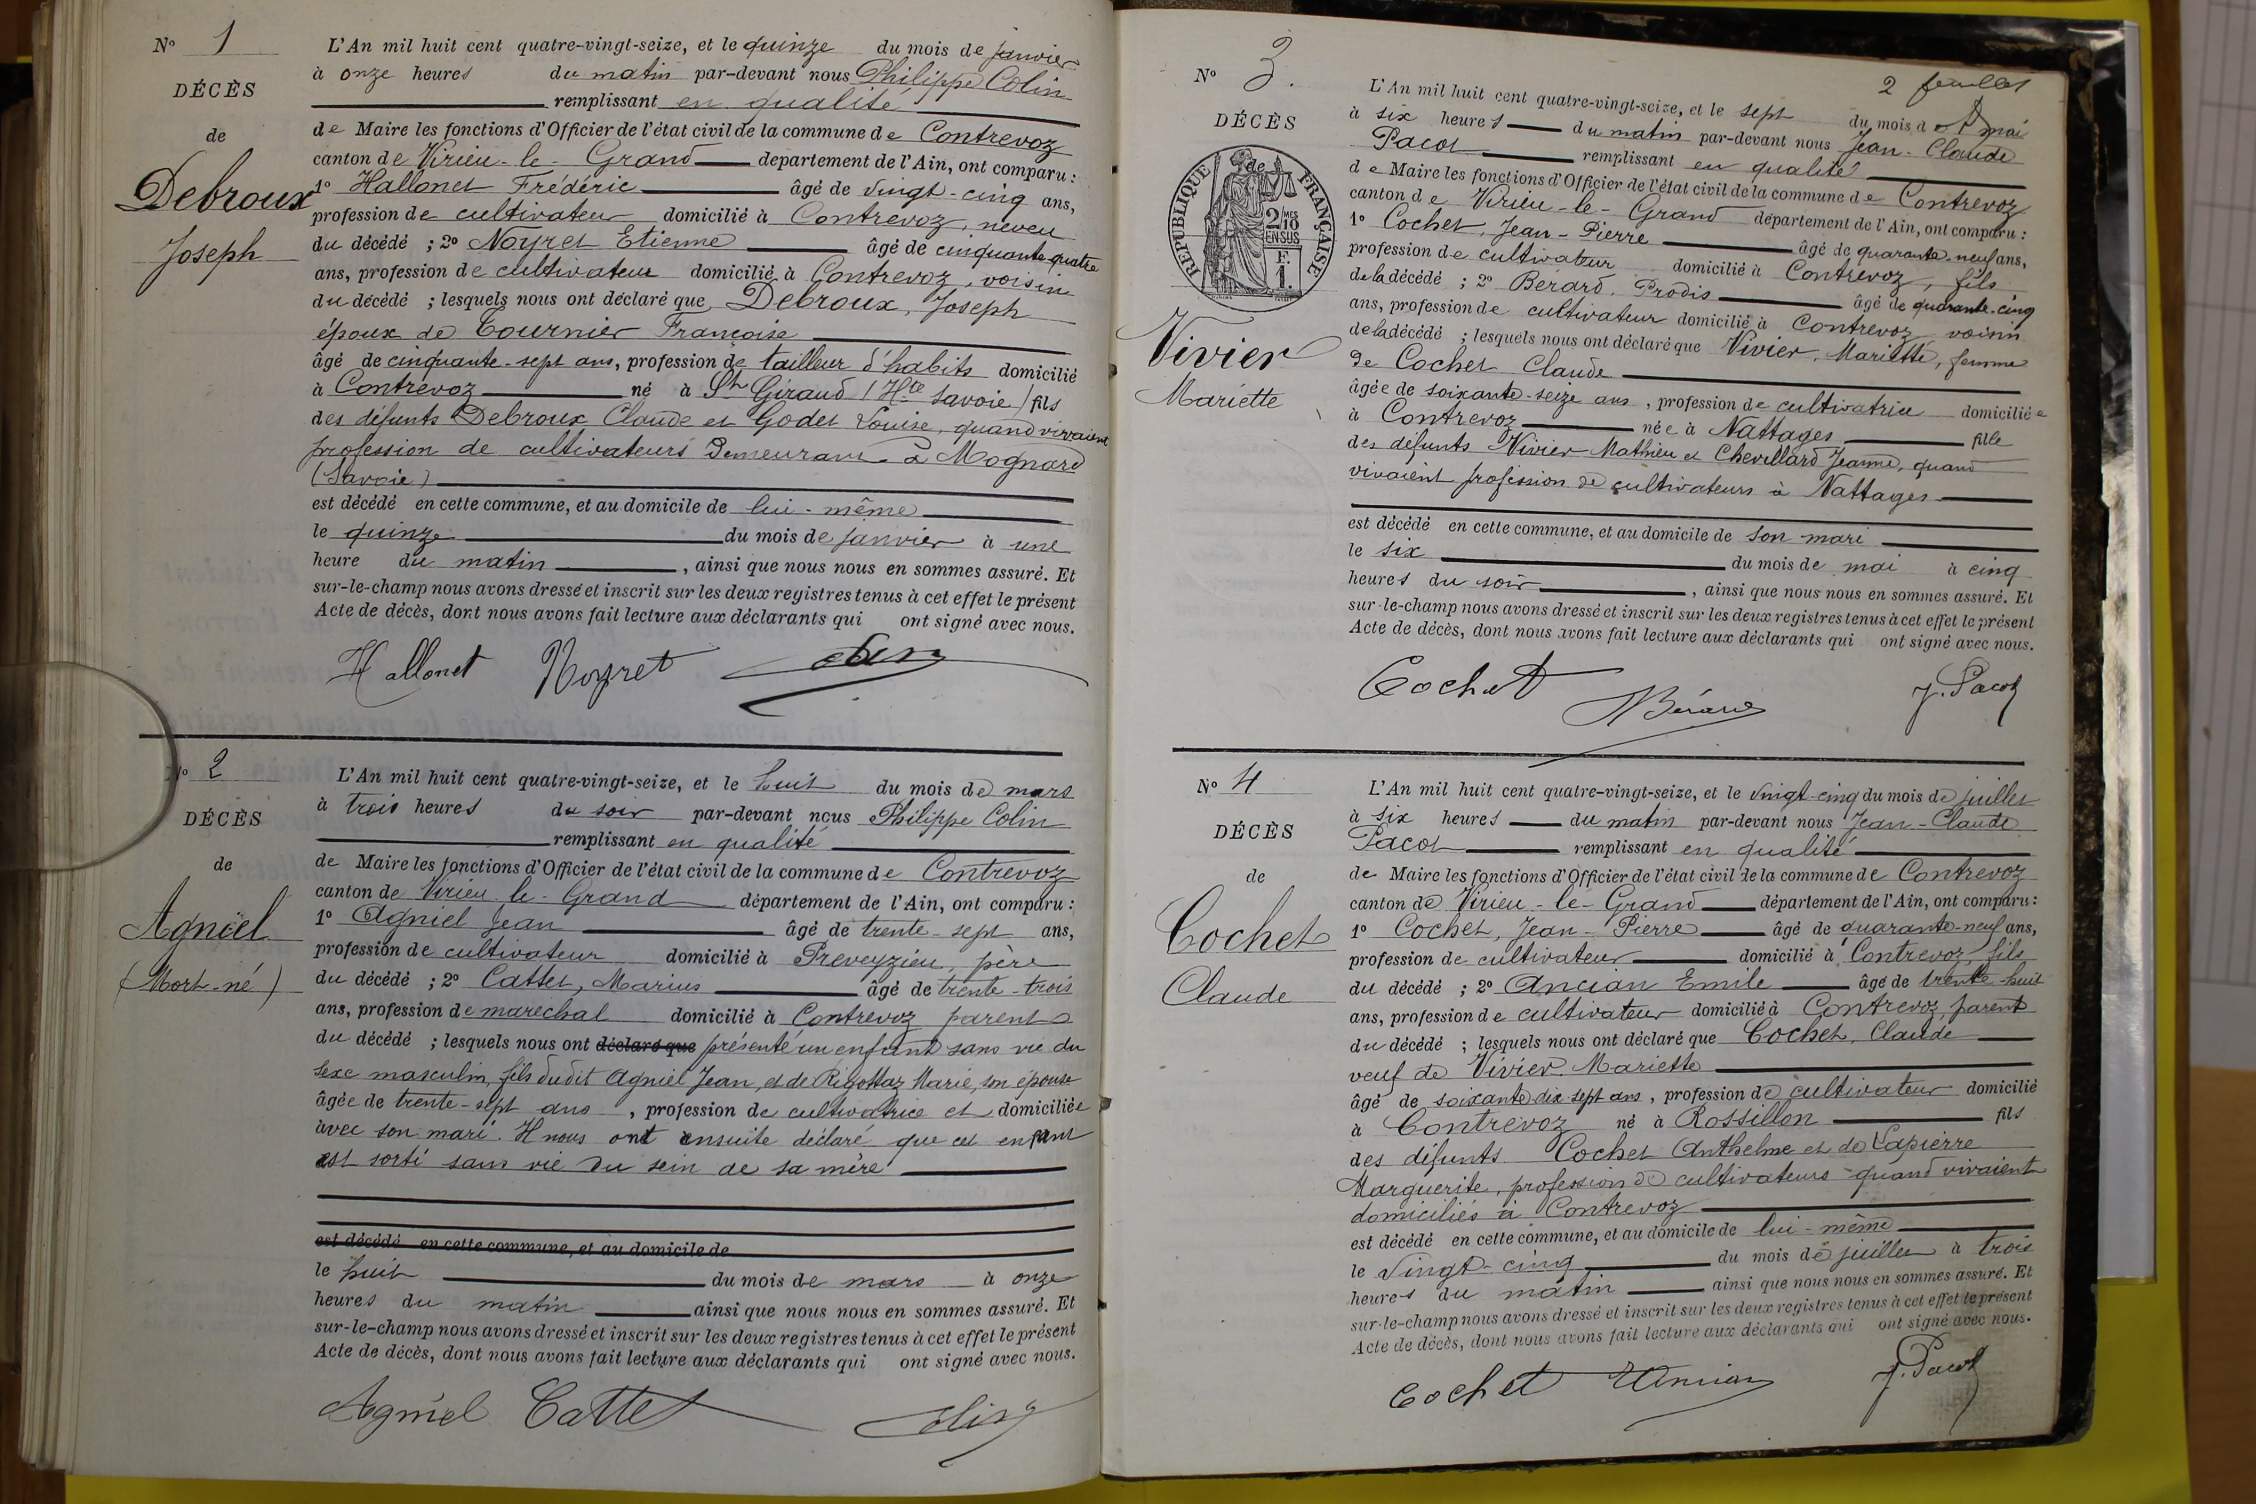 N° 1
DÉCÈS
de
Debroux
Joseph
L'An mil huit cent quatre-vingt-seize, et le quinze du mois de janvier
à onze heures du matin par-devant nous Philippe Colin
remplissant en qualité
de Maire les fonctions d'Officier de l'état civil de la commune de Contrevoz
canton de Virieu-le-Grand département de l'Ain, ont comparu :
1° Hallonet Frédéric âgé de vingt-cinq ans,
profession de cultivateur domicilié à Contrevoz, neveu
du décédé ; 2° Noyret Etienne âgé de cinquante-quatre
ans, profession de cultivateur domicilié à Contrevoz, voisin
du décédé ; lesquels nous ont déclaré que Debroux, Joseph
époux de Tournier Françoise
âgé de cinquante-sept ans, profession de tailleur d'habits domicilié
à Contrevoz né à St Giraud (Hte Savoie) fils
des défunts Debroux Claude et Godet Louise, quand vivaient
profession de cultivateurs demeurant à Mognard
(Savoie)
est décédé en cette commune, et au domicile de lui-même
le quinze du mois de janvier à une
heure du matin, ainsi que nous nous en sommes assuré. Et
sur-le-champ nous avons dressé et inscrit sur les deux registres tenus à cet effet le présent
Acte de décès, dont nous avons fait lecture aux déclarants qui ont signé avec nous.
Hallonet Noyret Colin
N° 2
DÉCÈS
de
Agniel
(Mort-né)
L'An mil huit cent quatre-vingt-seize, et le huit du mois de mars
à trois heures du soir par-devant nous Philippe Colin
remplissant en qualité
de Maire les fonctions d'Officier de l'état civil de la commune de Contrevoz
canton de Virieu-le-Grand département de l'Ain, ont comparu :
1° Agniel Jean âgé de trente-sept ans,
profession de cultivateur domicilié à Preveyzieu, père
du décédé ; 2° Cattet, Marius âgé de trente-trois
ans, profession de maréchal domicilié à Contrevoz parent
du décédé ; lesquels nous ont déclaré que présenté un enfant sans vie du
sexe masculin, fils dudit Agniel Jean, et de Rigottaz Marie, son épouse
âgée de trente-sept ans, profession de cultivatrice et domiciliée
avec son mari. Il nous ont ensuite déclaré que cet enfant
est sorti sans vie du sein de sa mère
est décédé en cette commune, et au domicile de
le huit du mois de mars à onze
heures du matin ainsi que nous nous en sommes assuré. Et
sur-le-champ nous avons dressé et inscrit sur les deux registres tenus à cet effet le présent
Acte de décès, dont nous avons fait lecture aux déclarants qui ont signé avec nous.
Agniel Cattet Colin
2 feuillet
N° 3.
DÉCÈS
de
RÉPUBLIQUE FRANÇAISE
2/10 MES
EN SUS
F.
1.
Vivier
Mariette
L'An mil huit cent quatre-vingt-seize, et le sept du mois de mai
à six heures du matin par-devant nous Jean-Claude
Pacot remplissant en qualité
de Maire les fonctions d'Officier de l'état civil de la commune de Contrevoz
canton de Virieu-le-Grand département de l'Ain, ont comparu :
1° Cochet, Jean-Pierre âgé de quarante-neuf ans,
profession de cultivateur domicilié à Contrevoz, fils
de la décédé ; 2° Bérard, Prodis âgé de quarante-cinq
ans, profession de cultivateur domicilié à Contrevoz voisin
de la décédé ; lesquels nous ont déclaré que Vivier, Mariette, femme
de Cochet Claude
âgée de soixante-seize ans, profession de cultivatrice domiciliée
à Contrevoz née à Nattages fille
des défunts Vivier Mathieu et Chevillard Jeanne, quand
vivaient profession de cultivateurs à Nattages
est décédé en cette commune, et au domicile de son mari
le six du mois de mai à cinq
heures du soir, ainsi que nous nous en sommes assuré. Et
sur-le-champ nous avons dressé et inscrit sur les deux registres tenus à cet effet le présent
Acte de décès, dont nous avons fait lecture aux déclarants qui ont signé avec nous.
Cochet Bérard J. Pacot
N° 4
DÉCÈS
de
Cochet
Claude
L'An mil huit cent quatre-vingt-seize, et le vingt-cinq du mois de juillet
à six heures du matin par-devant nous Jean-Claude
Pacot remplissant en qualité
de Maire les fonctions d'Officier de l'état civil de la commune de Contrevoz
canton de Virieu-le-Grand département de l'Ain, ont comparu :
1° Cochet, Jean-Pierre âgé de quarante-neuf ans,
profession de cultivateur domicilié à Contrevoz, fils
du décédé ; 2° Ancian Emile âgé de trente-huit
ans, profession de cultivateur domicilié à Contrevoz, parent
du décédé ; lesquels nous ont déclaré que Cochet, Claude
veuf de Vivier Mariette
âgé de soixante dix-sept ans, profession de cultivateur domicilié
à Contrevoz né à Rossillon fils
des défunts Cochet Anthelme et de Lapierre
Marguerite, profession de cultivateurs quand vivaient
domiciliés à Contrevoz
est décédé en cette commune, et au domicile de lui-même
le vingt-cinq du mois de juillet à trois
heures du matin ainsi que nous nous en sommes assuré. Et
sur-le-champ nous avons dressé et inscrit sur les deux registres tenus à cet effet le présent
Acte de décès, dont nous avons fait lecture aux déclarants qui ont signé avec nous.
Cochet Ancian J. Pacot